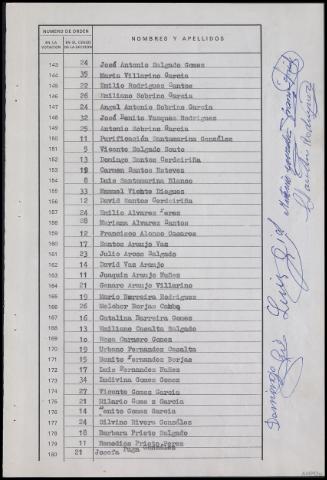 NUMERO DE ORDEN
NOMBRES Y APELLIDOS
EN LA VOTACION
EN EL CENSO DE LA SECCION
143 24 José Antonio Salgado Gomez
144 35 Maria Villarino Garcia
145 22 Emilio Rodriguez Santos
146 26 Emiliano Sobrino Garcia
147 24 Angel Antonio Sobrino Garcia
148 32 José Benito Vazquez Rodriguez
149 25 Antonio Sobrino Garcia
150 11 Purificación Santamarina González
151 5 Vicente Salgado Souto
152 13 Domingo Santos Cerdeiriña
153 19 Carmen Santos Esteves
154 8 Luis Santamarina Blanco
155 33 Manuel Vicho Dieguez
156 12 David Santos Cerdeiriña
157 24 Emilio Alvarez Perez
158 28 Mariana Alvarez Santos
159 12 Francisco Alonso Casares
160 17 Santos Araujo Vaz
161 23 Julio Arcos Salgado
162 14 David Vaz Araujo
163 11 Joaquin Araujo Nuñez
164 21 Genaro Araujo Villarino
165 19 Mario Barreira Rodriguez
166 26 Melchor Borjas
167 16 Catalina Barreira Gomez
168 13 Emiliano Casalta Salgado
169 10 Rosa Carnero Gomez
170 19 Urbano Fernandez Casalta
171 15 Benito Fernandez Borjas
172 17 Luis Fernandez Nuñez
173 34 Ludivina Gomez Gomez
174 27 Vicente Gomez Garcia
175 21 Hilario Gomez Garcia
176 14 Benito Gomez Garcia
177 24 Silvino Rivero González
178 18 Barbara Prieto Salgado
179 11 Remedios Prieto Perez
180 21 Josefa Puga González
Domingo
Luis Gid